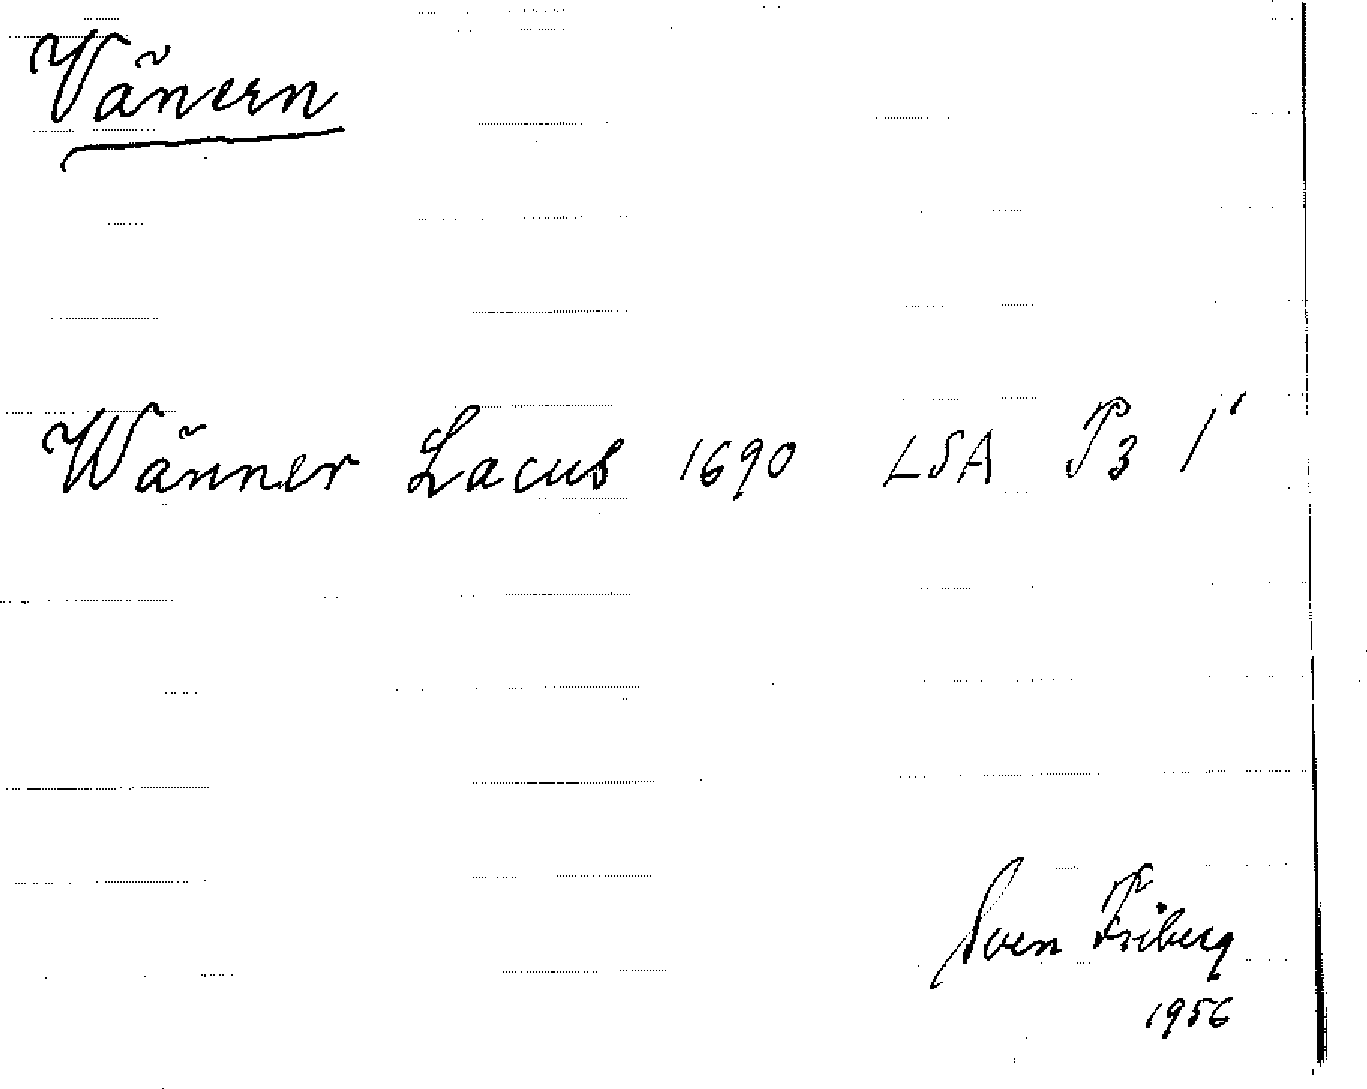 Vänern
Wänner Lacus 1690 LSA P3 1'
Sven Friberg
1956